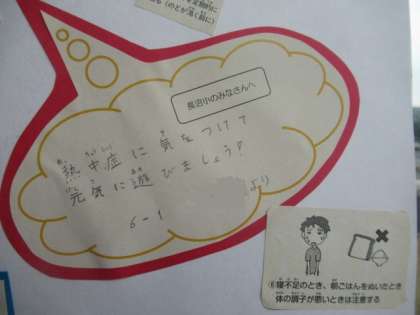 長沼小のみなさんへ
熱中症に気をつけて
元気に遊びましょう!
より
6-1
⑥寝不足のとき、朝ごはんをぬいたとき
体の調子が悪いときは注意する